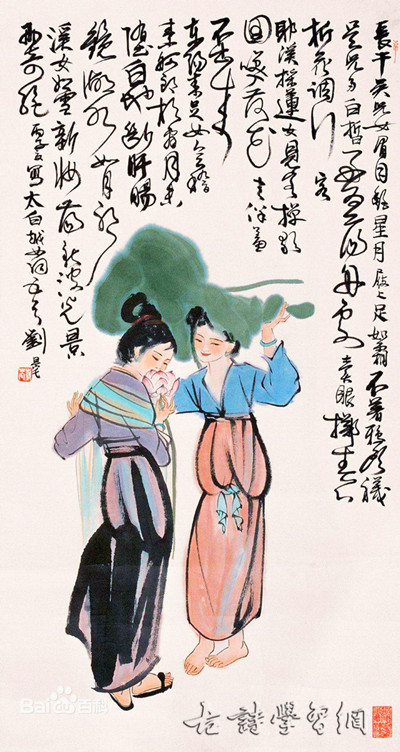 長干吳兒女眉目艷星月屐上足如霜不著鴉頭襪
吳兒多白皙好為蕩舟劇賣眼擲春心
折花調行客
耶溪採蓮女見客棹歌
回笑入荷花去佯羞
不出來
東陽素足女會稽
素舸郎相看月未
墮白地斷肝腸
鏡湖水如月耶
溪女如雪新妝蕩新波光景
兩奇絕 寫太白越女詞五首 劉旦宅
Baidu百科
古詩學習網